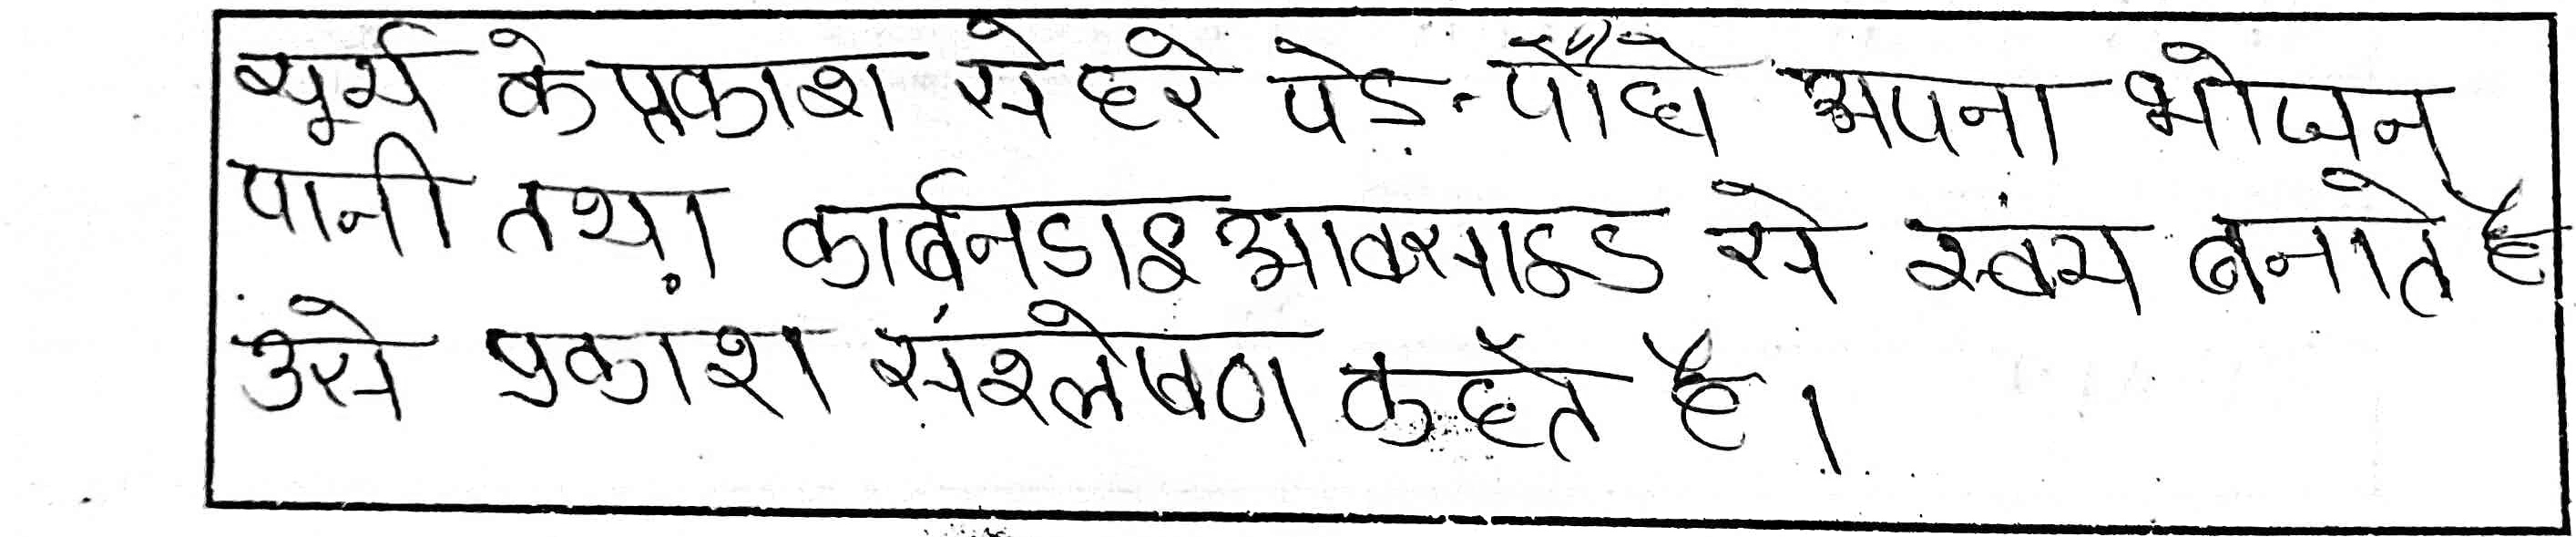 सूर्य के प्रकाश से हरे पेड़-पौधे अपना भोजन
पानी तथा कार्बनडाइआक्साइड से स्वंय बनाते है
उसे प्रकाश संश्लेषण कहते है।